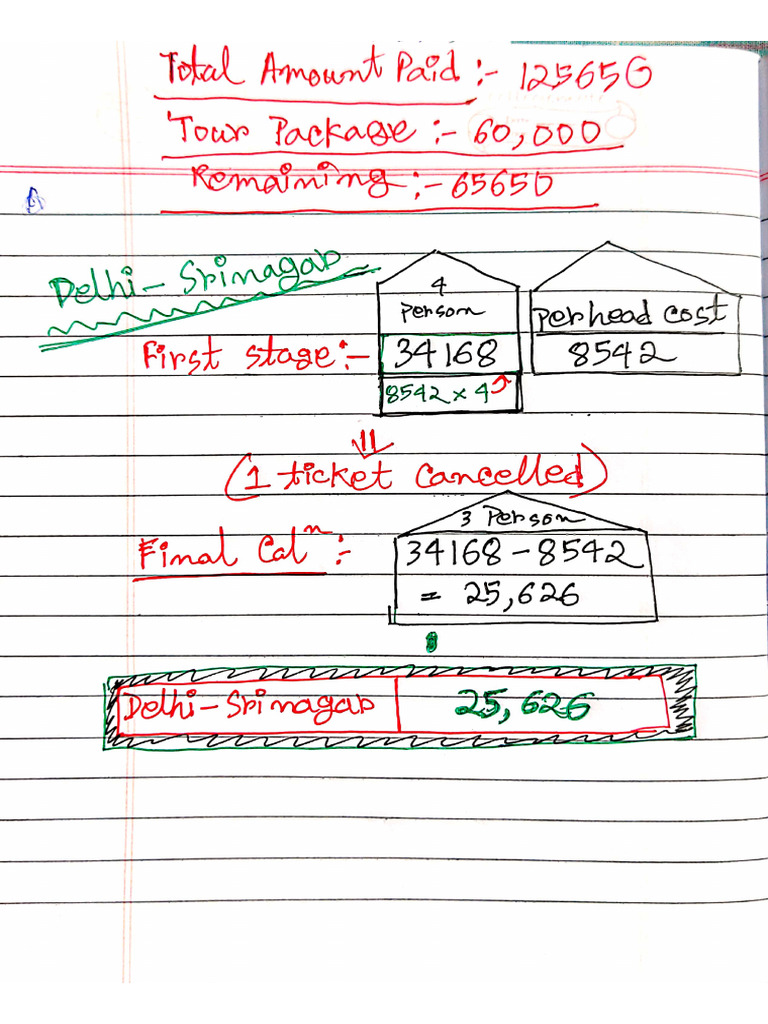 Total Amount Paid :- 125650
Tour Package :- 60,000
Remaining :- 65650
Delhi - Srinagar
4
Person
per head cost
First stage :- 34168 8542
8542 x 4
(1 ticket cancelled)
3 Person
Final Calⁿ :- 34168 - 8542
= 25,626
Delhi - Srinagar 25,626